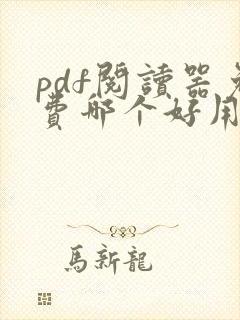 pdf閱讀器免
費哪个好用
馬新龍